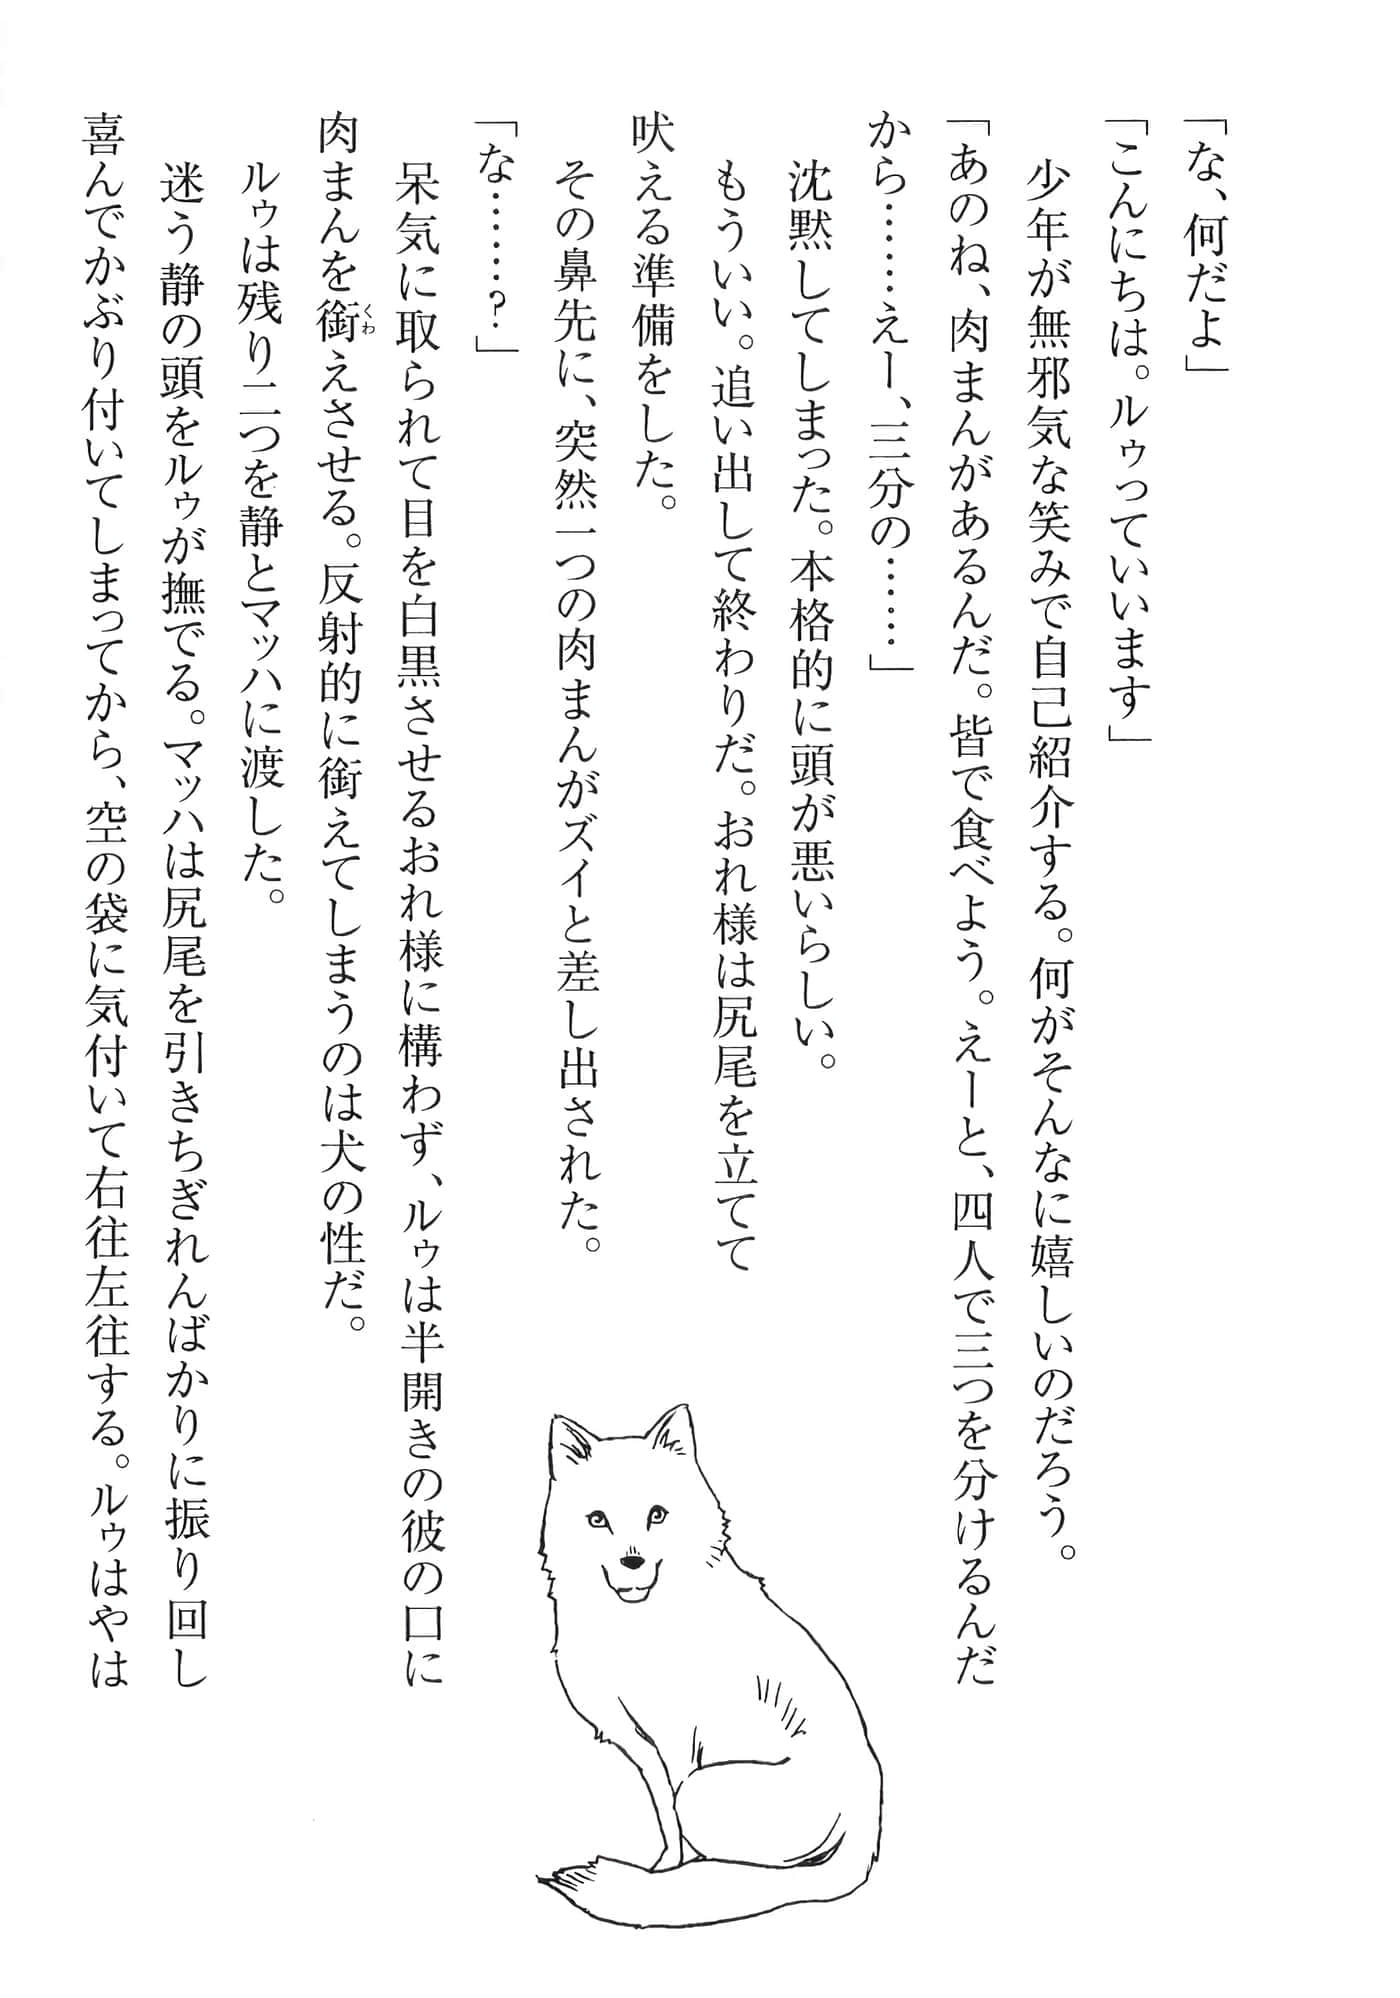 「な、何だよ」
「こんにちは。ルゥっていいます」
　少年が無邪気な笑みで自己紹介する。何がそんなに嬉しいのだろう。
「あのね、肉まんがあるんだ。皆で食べよう。えーと、四人で三つを分けるんだ
から……えー、三分の……」
　沈黙してしまった。本格的に頭が悪いらしい。
　もういい。追い出して終わりだ。おれ様は尻尾を立てて
吠える準備をした。
　その鼻先に、突然一つの肉まんがズイと差し出された。
「な……？」
　呆気に取られて目を白黒させるおれ様に構わず、ルゥは半開きの彼の口に
肉まんを銜（くわ）えさせる。反射的に銜えてしまうのは犬の性だ。
　ルゥは残り二つを静とマッハに渡した。
　迷う静の頭をルゥが撫でる。マッハは尻尾を引きちぎれんばかりに振り回し
喜んでかぶり付いてしまってから、空の袋に気付いて右往左往する。ルゥはやは